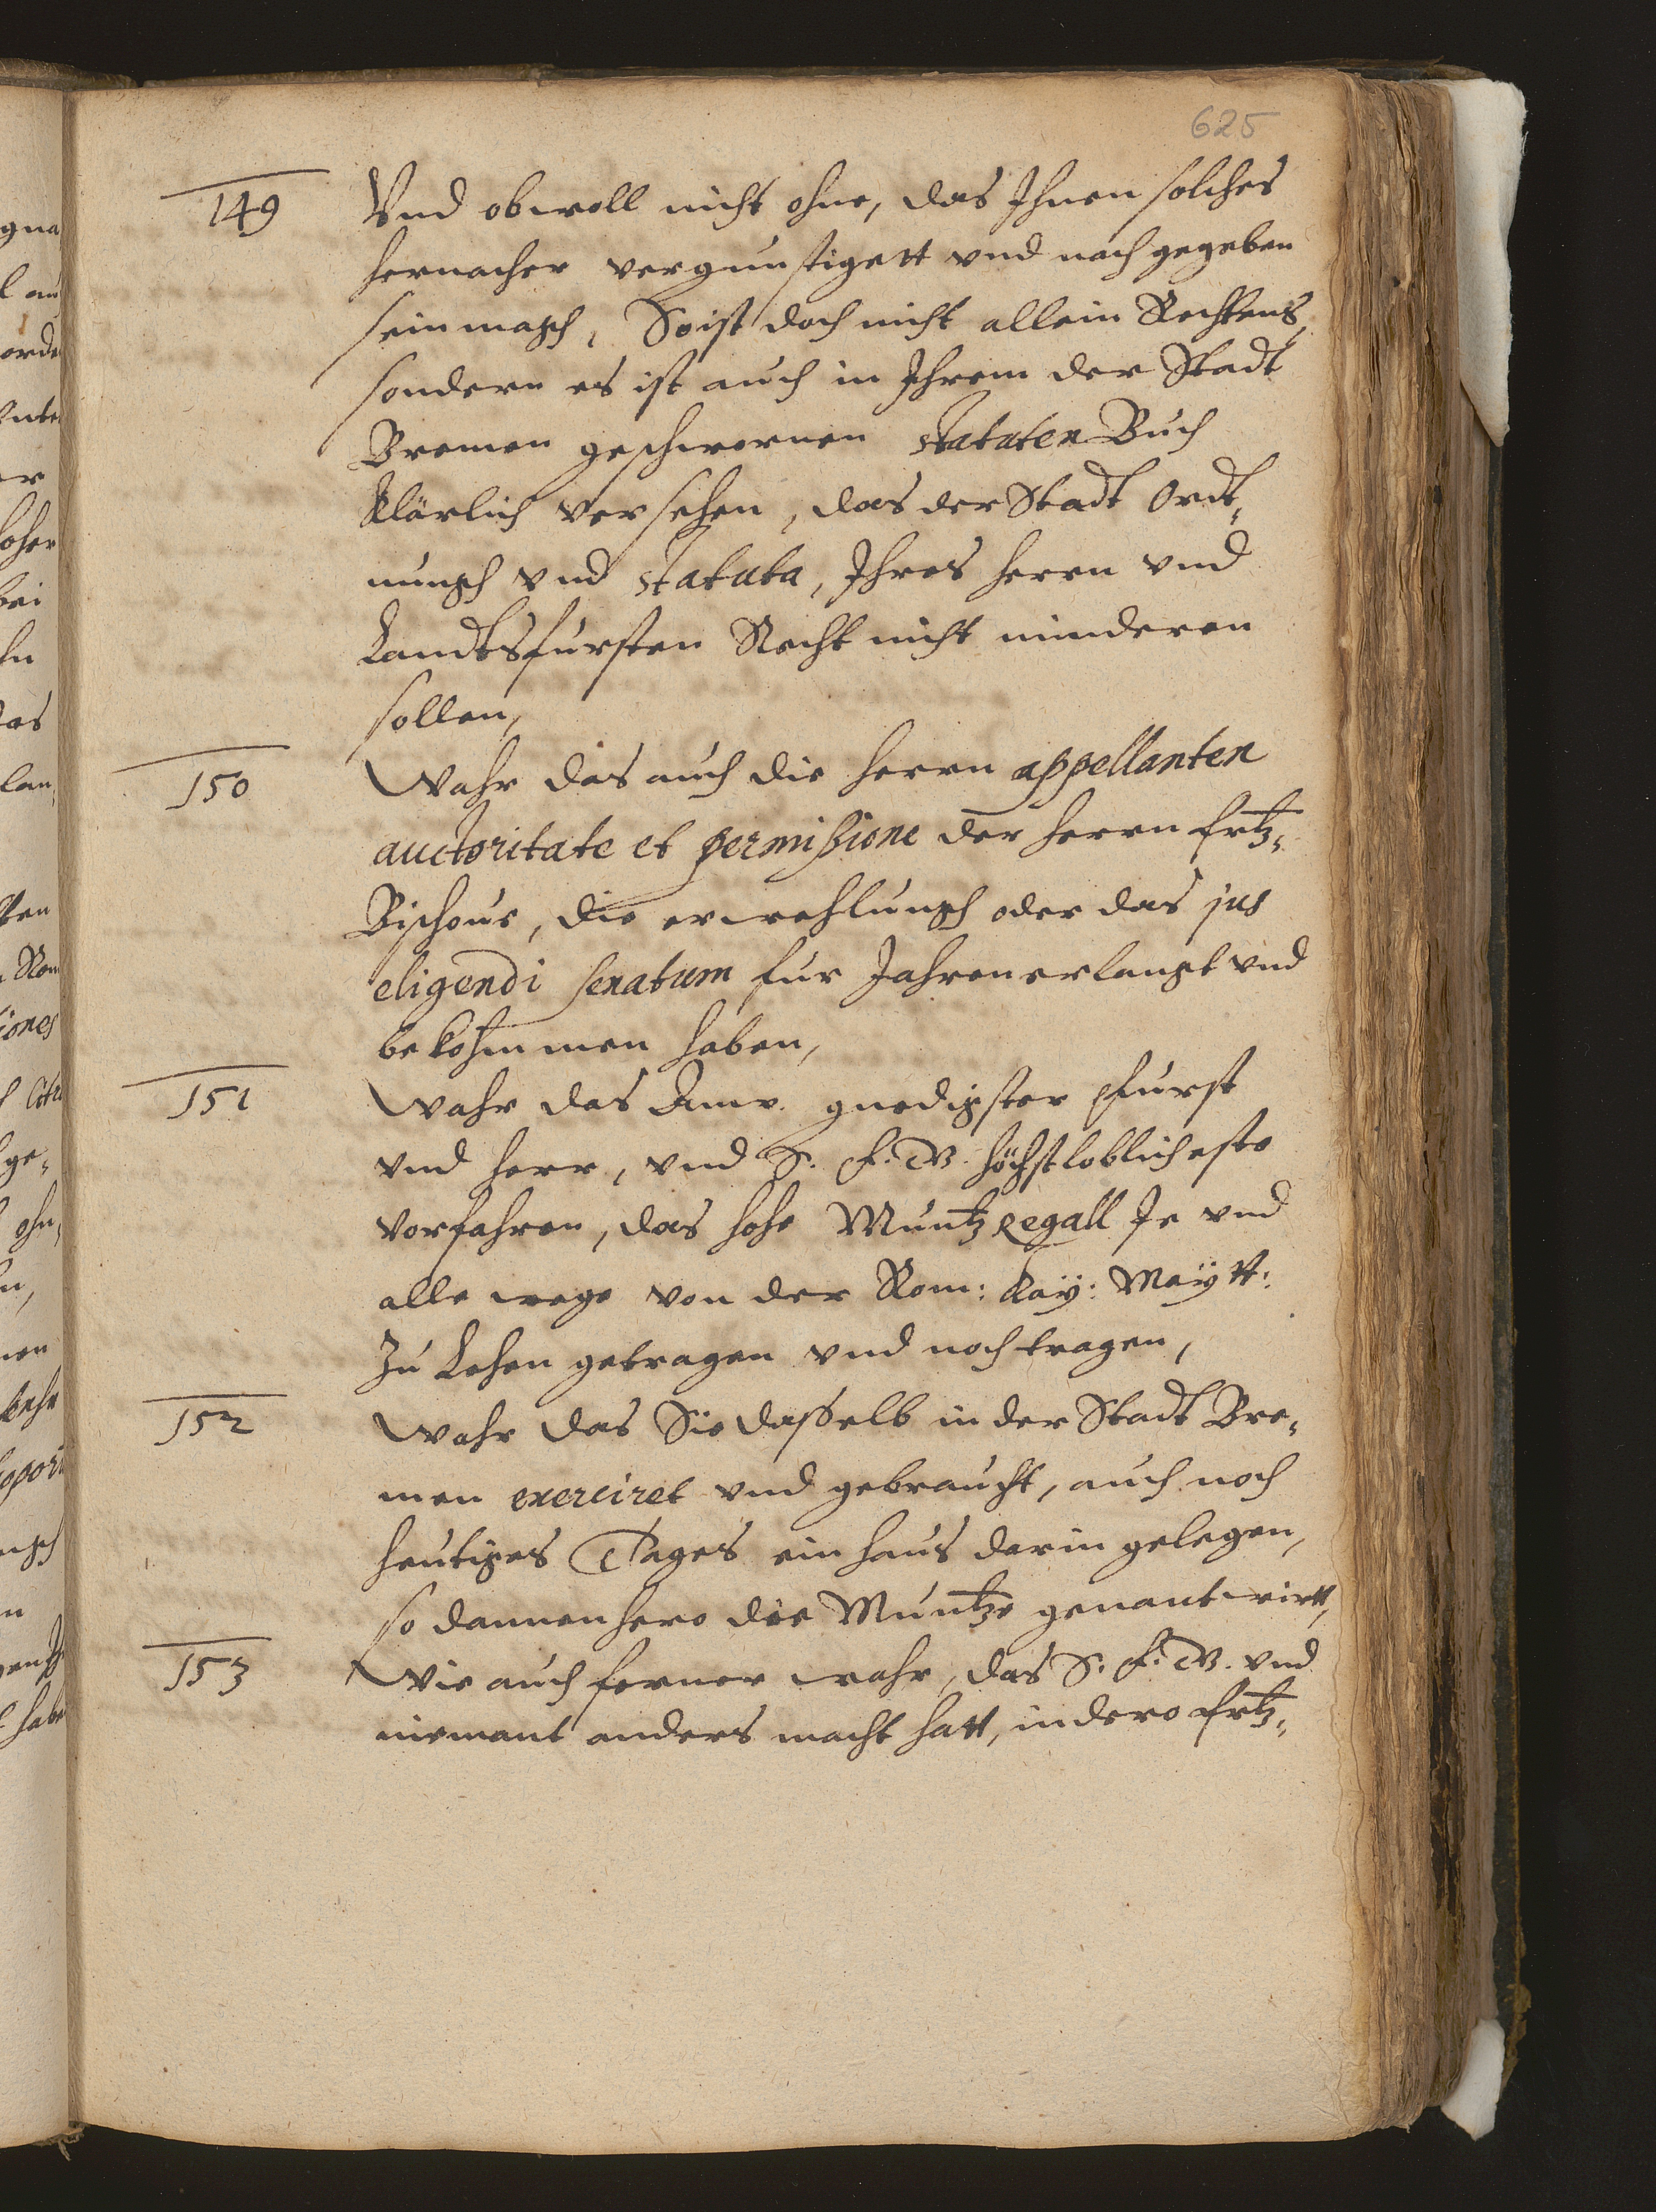 625
149 Vnd obwoll nicht ohne, das Ihnen solches
hernacher vergunstigett vnd nachgegeben
sein magh, So ist doch nicht allein Rechtens,
sondern es ist auch in Ihrem der Stadt
Bremen geschwornen statuten Buch
klärlich versehen, das der Stadt Ordt„
nungh vnd statuta, Ihres herrn vnd
Landtsfursten Recht nicht minderen
sollen,
150 Wahr das auch die herrn appellanten
auctoritate et permißione der herrn Ertz„
Bischoue, die erwehlungh oder das jus
eligendi senatum fur Jahren erlangt vnd
bekohmmen haben,
151 Wahr das Anw. gnedigster Furst
vnd herr, vnd S. F. W. höchstloblicheste
Vorfahren, das hohe Muntz Regall Je vnd
alle wege von der Rom: Kay: Maytt:
Zu Lehen getragen vnd noch tragen,
152 Wahr das Sie dasselb in der Stadt Bre„
men exerciret vnd gebraucht, auch noch
heutiges Tages ein haus darin gelegen,
so dannenhero die Muntze genant wirtt,
153 Wie auch ferner wahr, das S. F. W. vnd
niemant anders macht hatt, in dero Ertz„